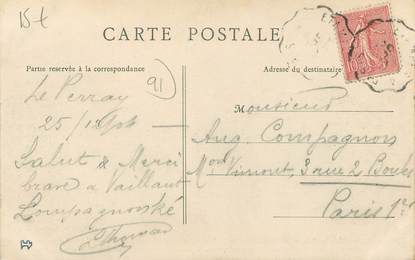 15 t
CARTE POSTALE
Partie reservée à la correspondance
Adresse du destinataire
91
Le Perray
25/12/04
Salut & Merci
brave & Vaillant
Compagnonské
LThomas
Monsieur
Aug. Compagnon
Mon Vimont, 3 rue 2 Boules
Paris 1er